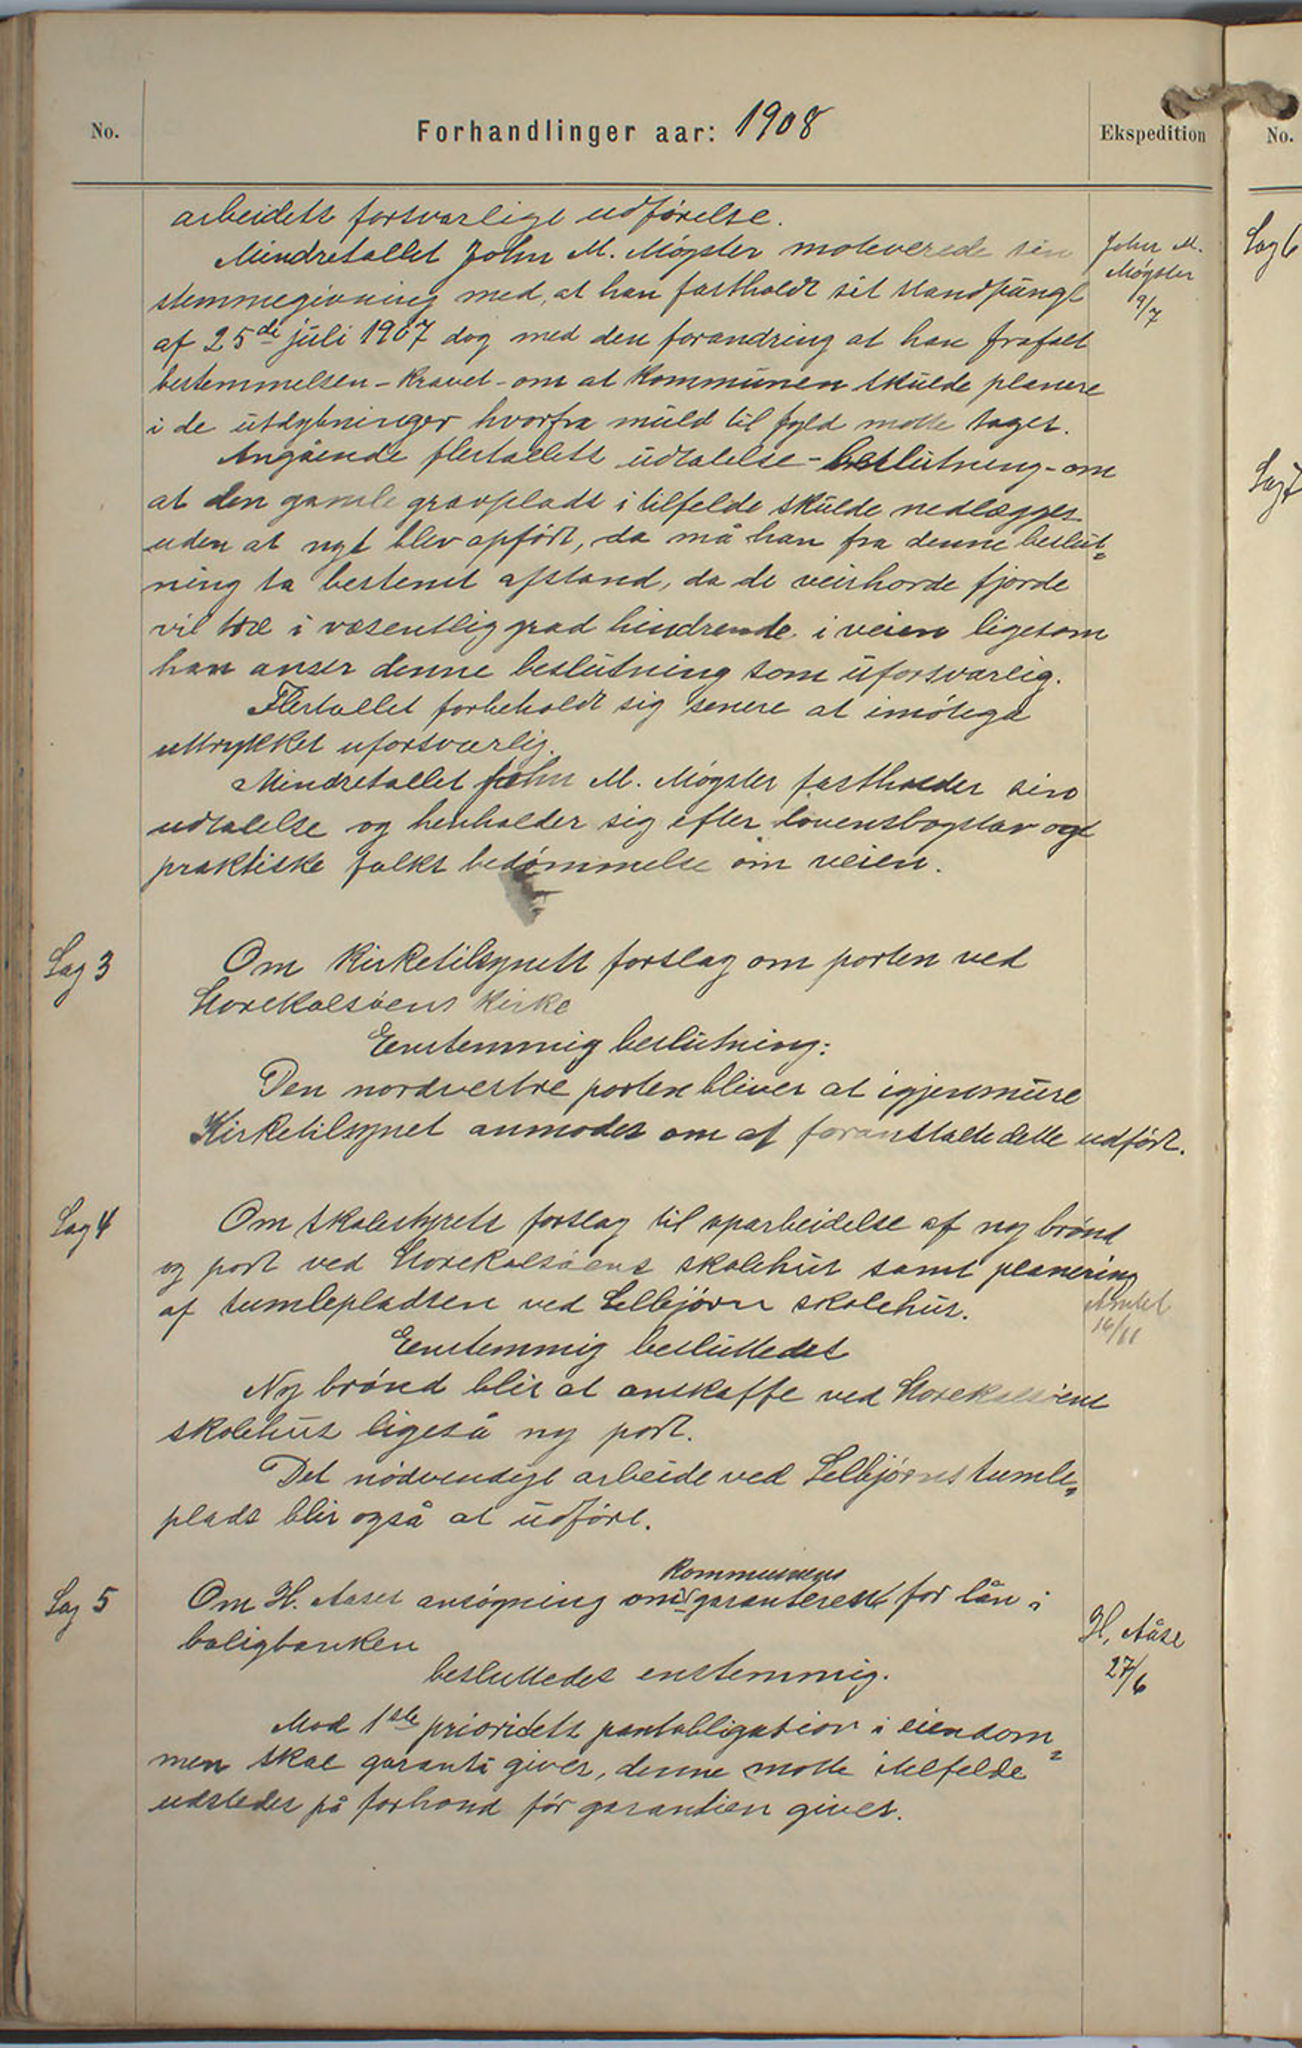 No.
Forhandlinger aar: 1908
Ekspedition
No.
arbeidets forsvarlige udførelse.
Mindretallet John M. Møgster moteverede sin
John M.
Møgster
9/7
stemmegivning med, at han fastholdt sit standpungt
af 25de juli 1907 dog med den forandring at han frafalt
bestemmelsen - kravet - om at kommunen skulde planere
i de utdybninger hvorfra muld til fyld motte tages.
Angående flertallets udtalelse - beslutning - om
at den gamle gravplads i tilfelde skulde nedlægges
uden at nyt blev opført, da må han fra denne beslut-
ning ta bestemt afstand, da de veirhorde fjorde
vil i væsentlig grad hindrende i veien ligesom
han anser denne beslutning som uforsvarlig.
Flertallet forbeholdt sig senere at imøtega
uttrykket uforsvarlig.
Mindretallet John M. Møgster fastholder sin
udtalelse og henholder sig efter lovensbogstav ogt
praktiske folks bedømmelse om veien.
Sag 3
Om kirketilsynets forslag om porten ved
Storekalsøens kirke
Eenstemmig beslutning:
Den nordvestre porten bliver at igjenmure
Kirketilsynet anmodes om at foranstalte dette udført.
Sag 4
Om skolestyrets forslag til oparbeidelse af ny brønd
og port ved Storekalsøens skolehus samt planering
af tumlepladsen ved Selbjørn skolehus.
16/11
Eenstemmig besluttedes
Ny brønd blir at anskaffe ved Storekalsøens
skolehus ligeså ny port.
Det nødvendige arbeide ved Selbjørns tumle-
plads blir også at udføre.
Sag 5
Om H. Aases ansøgning om kommunens garanterest for lån i
boligbanken
H. Aåse
27/6
besluttedes enstemmig.
Mod 1ste prioridets pantobligation i eiendom-
men skal garanti gives, denne motte i tilfelde
udstedes på forhond før garantien gives.
Sag 6
Sag 7